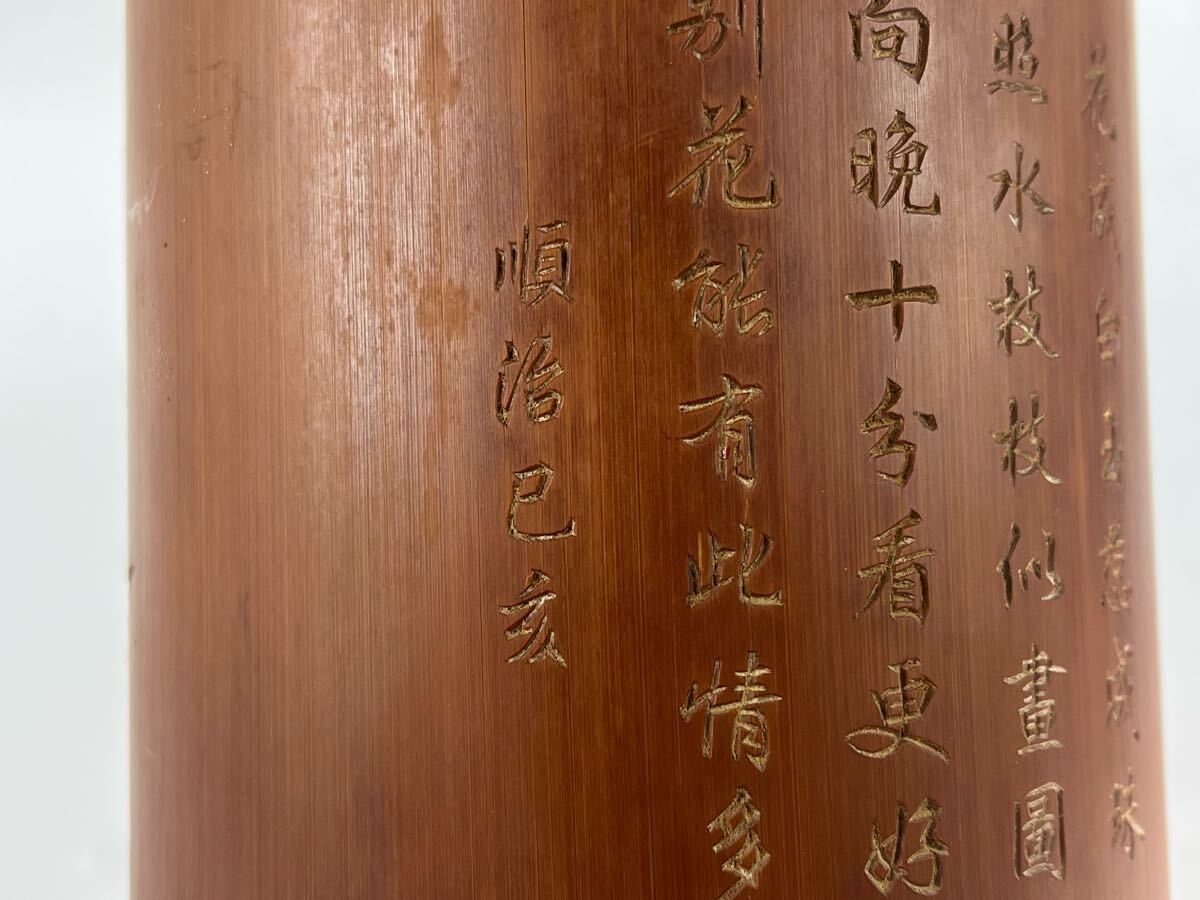 花 白玉 成珠
照水枝枝似畫圖
向晚十分看更好
別花能有此情多
順治己亥